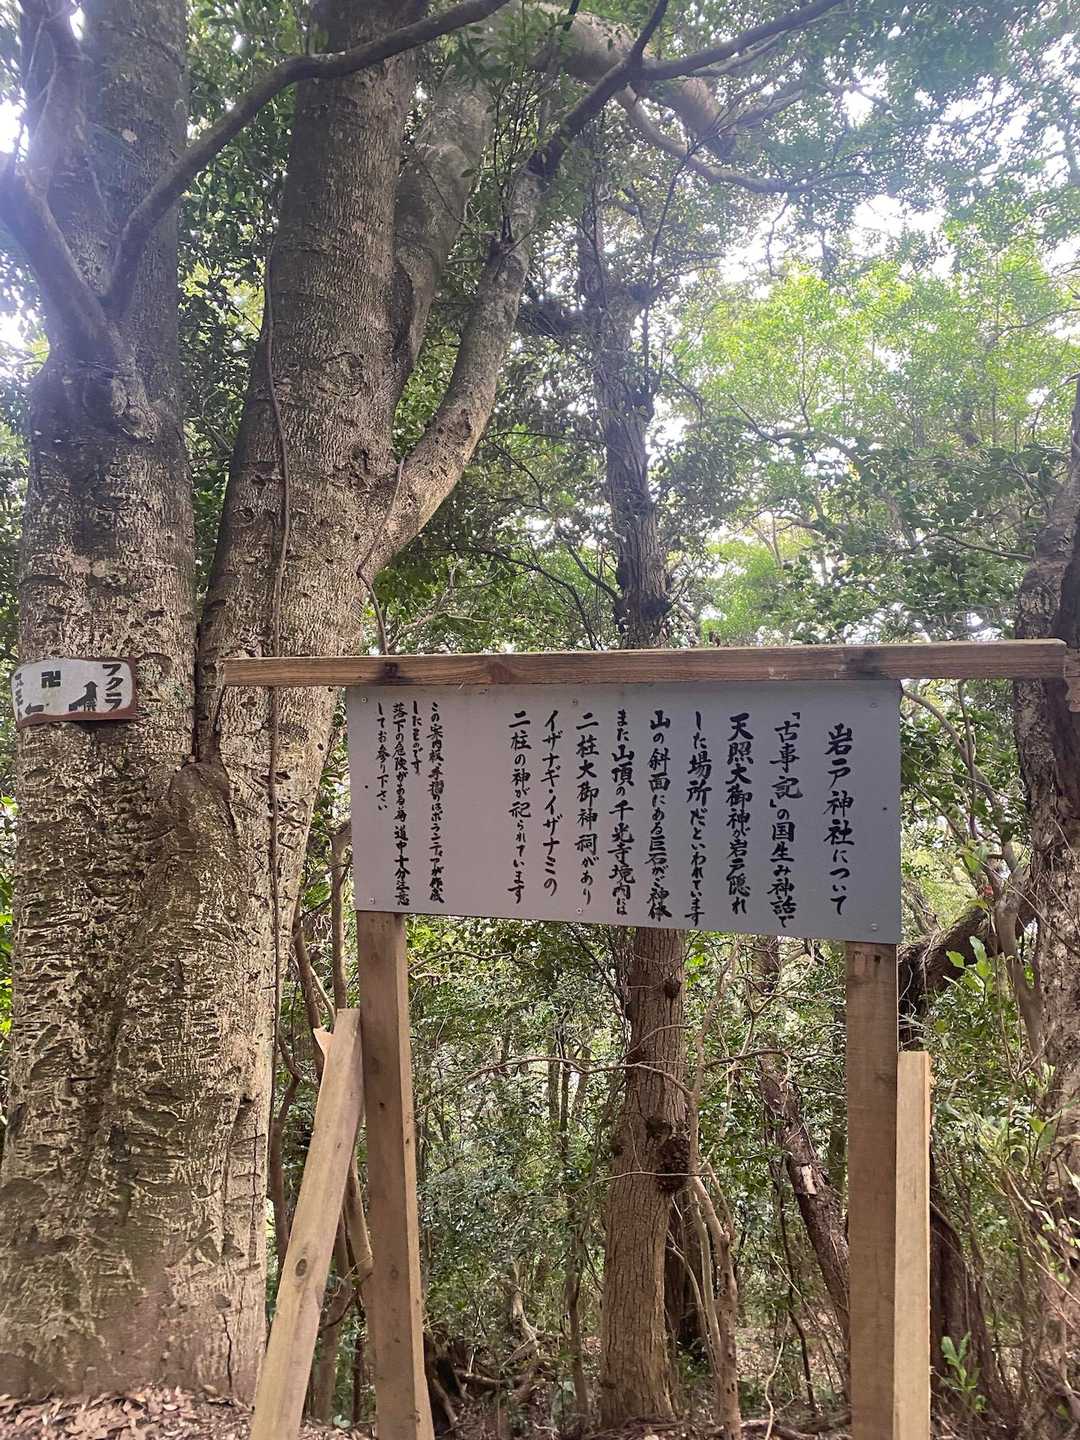 岩戸神社について
「古事記」の国生み神話で
天照大御神が岩戸隠れ
した場所だといわれています
山の斜面にある巨石がご神体
また山頂の千光寺境内には
二柱大御神祠があり
イザナギ・イザナミの
二柱の神が祀られています
この案内板・手摺りはボランティアが作成
したものです。
落下の危険がある為道中十分注意
してお参り下さい
フクラ
卍